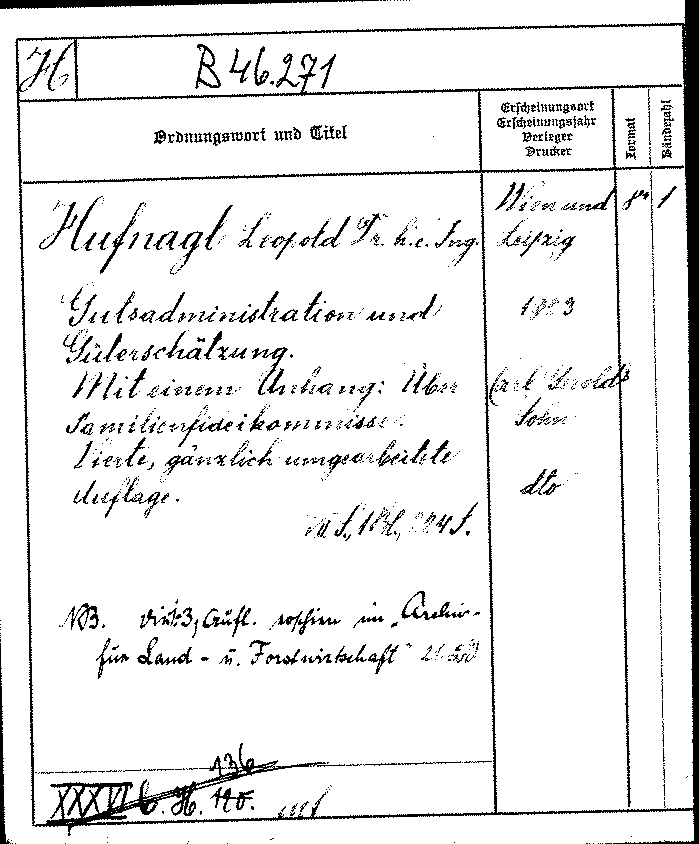 H
B 46.271
Ordnungswort und Titel
Erscheinungsort
Erscheinungsjahr
Verleger
Drucker
Format
Bändezahl
Hufnagl Leopold Dr. h. c. Ing.
Wien und
Leipzig
8°
1
Gutsadministration und
Güterschätzung.
Mit einem Anhang: Über
Familienfideikommisse.
Vierte, gänzlich umgearbeitete
Auflage.
Carl Gerold's
Sohn
dto
NB. Aufl. erschien im „Archiv
für Land- u. Forstwirtschaft"
136
XXXVI C. H. 120.